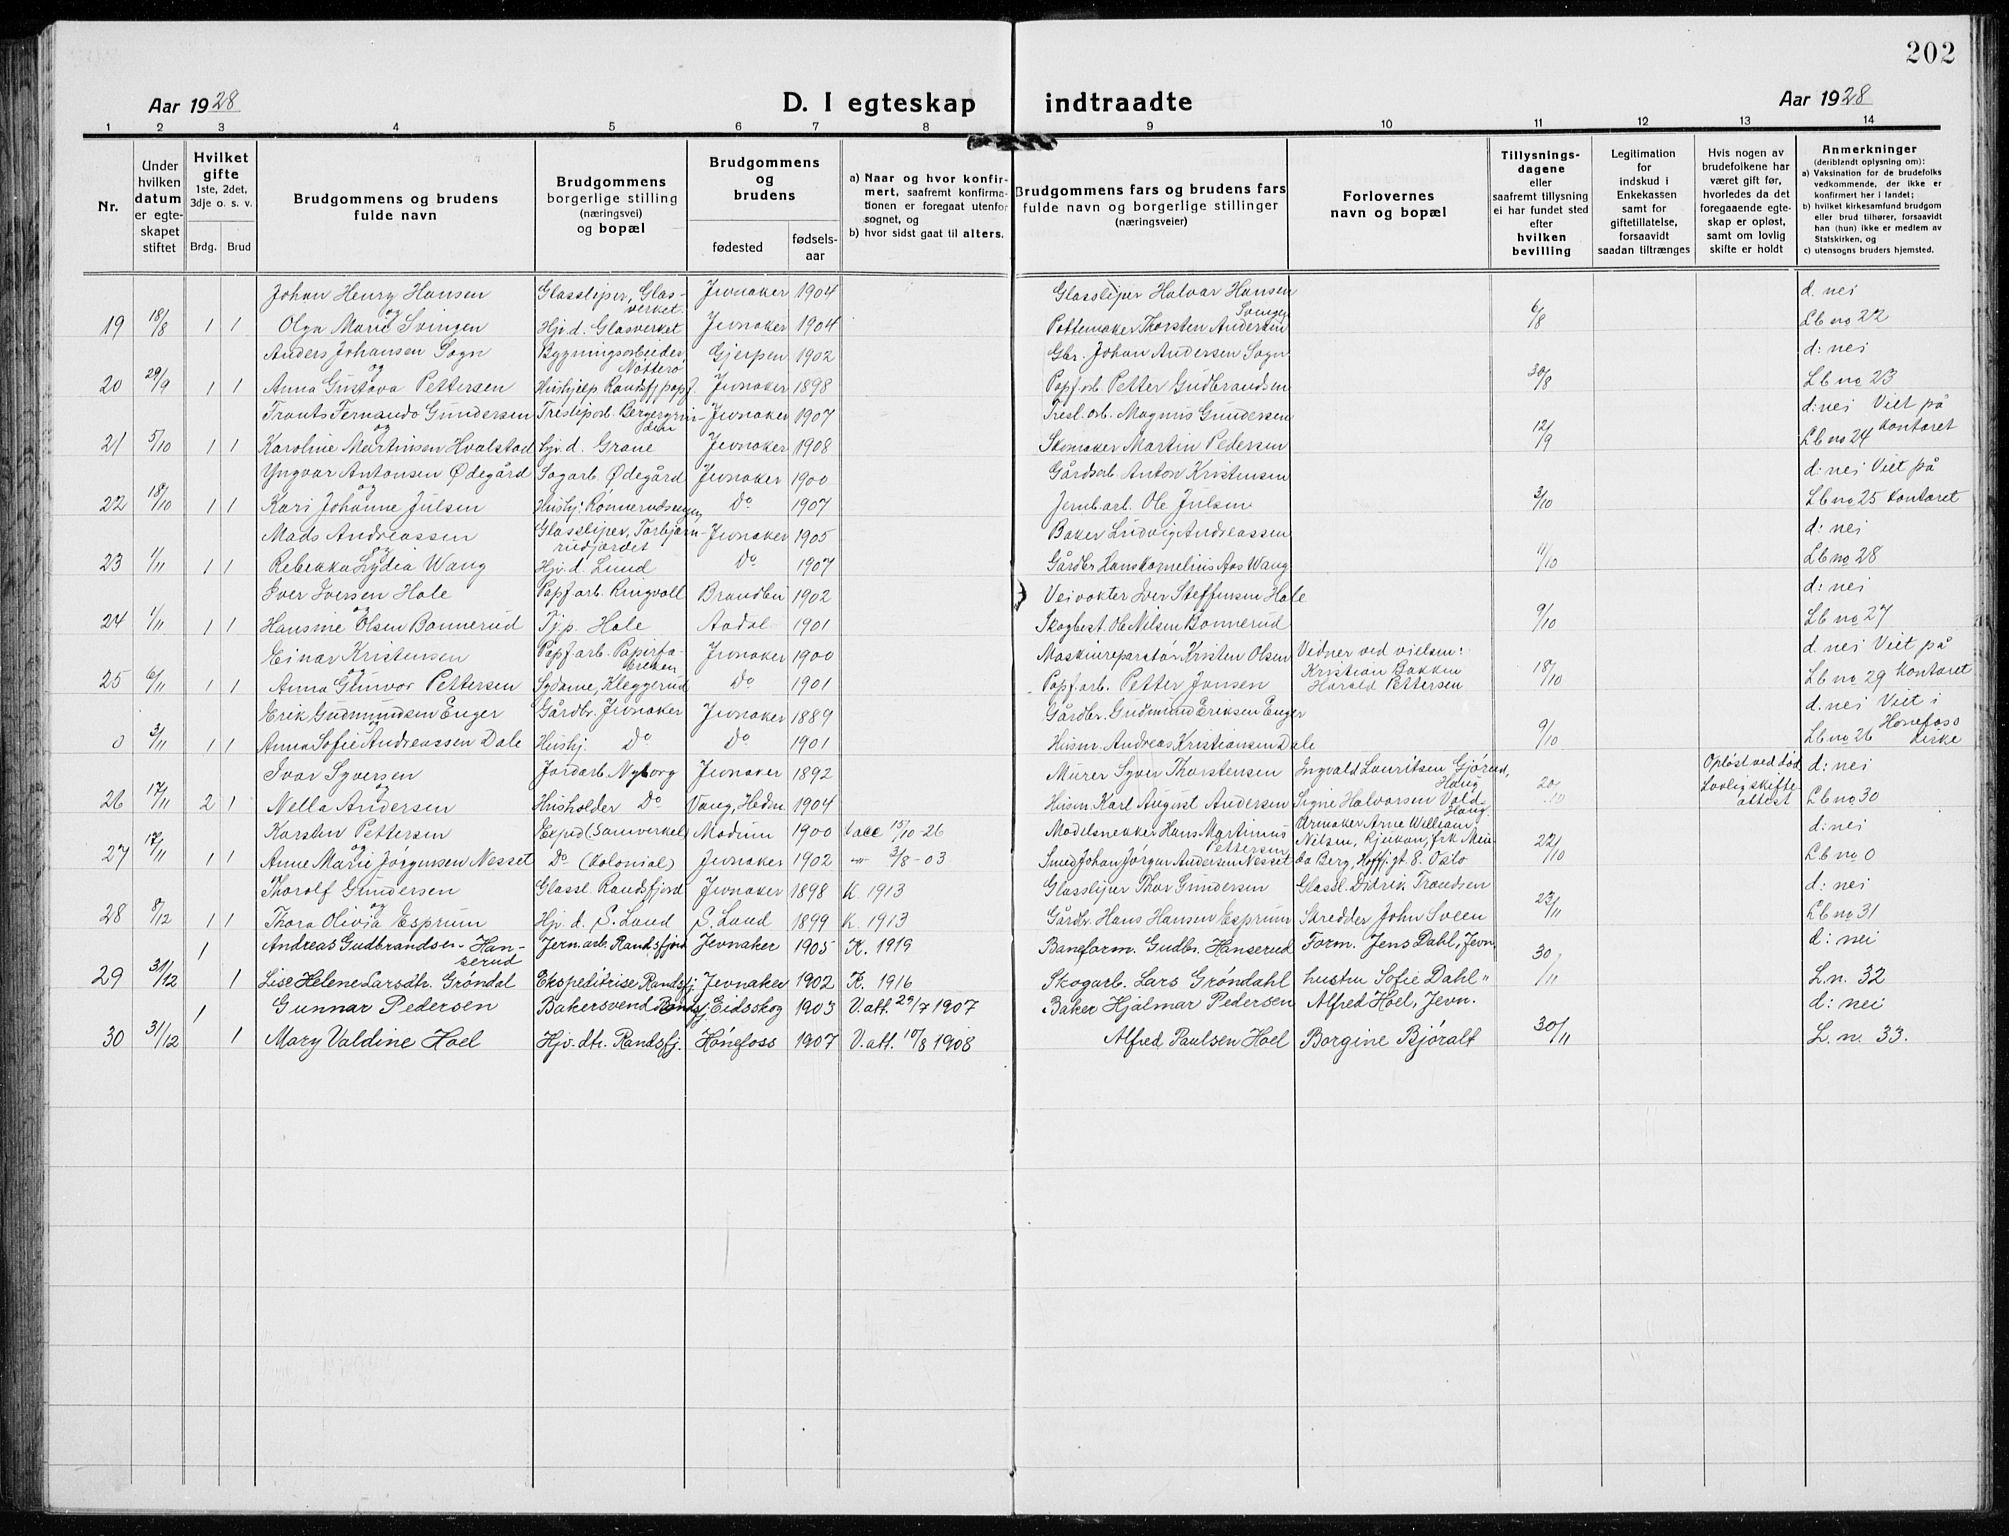 202
Aar 1928
D. I egteskap indtraadte
Aar 1928
1 2 3 4 5 6 7 8 9 10 11 12 13 14
Nr.
Under hvilken datum er egteskapet stiftet
Hvilket gifte 1ste, 2det, 3dje o. s. v.
Brdg. Brud
Brudgommens og brudens fulde navn
Brudgommens borgerlige stilling (næringsvei) og bopæl
Brudgommens og brudens
fødested
fødselsaar
a) Naar og hvor konfirmert, saafremt konfirmationen er foregaat utenfor sognet, og
b) hvor sidst gaat til alters.
Brudgommens fars og brudens fars fulde navn og borgerlige stillinger (næringsveier)
Forlovernes navn og bopæl
Tillysningsdagene eller saafremt tillysning ei har fundet sted efter hvilken bevilling
Legitimation for indskud i Enkekassen samt for giftetillatelse, forsaavidt saadan tiltrænges
Hvis nogen av brudefolkene har været gift før, hvorledes da det foregaaende egteskap er opløst, samt om lovlig skifte er holdt
Anmerkninger (deriblandt oplysning om):
a) Vaksination for de brudefolks vedkommende, der ikke er konfirmert her i landet;
b) hvilket kirkesamfund brudgom eller brud tilhører, forsaavidt han (hun) ikke er medlem av Statskirken, og
c) utensogns bruders hjemsted.
Johan Henry Hansen Glassliper, Glasverket Jevnaker 1904 Glassliper Halvar Hansen d. nei
19 18/8 1 1 og Olga Marie Svingen Hjv. d. Glasverket Jevnaker 1904 Pottemaker Thorsten Andersen Svingen 6/8 Lb no 22
Anders Johansen Sogn Bygningsarbeider Nøtterø Gjerpen 1902 Gbr. Johan Andersen Sogn d: nei
20 29/9 1 1 og Anna Gustava Pettersen Hushjelp Randsfj papf. Jevnaker 1898 Papf arb. Petter Gudbrandsen 30/8 Lb no 23
Frants Fernando Gundersen Tresliparb. Bergergrinden Jevnaker 1907 Tresl. arb. Magnus Gundersen d: nei Viet på
21 5/10 1 1 og Karoline Martinsen Hvalstad Hjv. d. Grane Jevnaker 1908 Skomaker Martin Pedersen 12/9 Lb no 24 Kontoret
Yngvar Antonsen Ødegård Sagarb. Ødegård Jevnaker 1900 Gårdsarb. Anton Kristensen d: nei Viet på
22 18/10 1 1 og Kari Johanne Julsen Hushj. Rønnerudseng Do 1907 Jernb arb. Ole Julsen 3/10 Lb no 25 Kontoret
Mads Andreassen Glassliper, Torbjørnrudjordet Jevnaker 1905 Baker Ludvig Andreassen d: nei
23 1/11 1 1 og Rebekka Lydia Wang Hjv. d. Lund Do 1907 Gårdbr Hans Kornelius Aas Wang 11/10 Lb no 28
Iver Iversen Hole Papf arb. Ringvoll Brandbu 1902 Veivokter Iver Steffensen Hole d: nei
24 1/11 1 1 og Hansine Olsen Bonnerud Tj. p. Hole Aadal 1901 Skogbest. Ole Nilsen Bonnerud 9/10 Lb no 27
Einar Kristensen Papf arb. Papirfabrikken Jevnaker 1900 Maskinreparatør Kristen Olsen Vidner ved vielsen: d. nei Viet på
25 6/11 1 1 og Anna Gunvor Pettersen Sydame, Kleggerud Do 1901 Papf. arb. Petter Jonsen Kristian Bakken Harald Pettersen 18/10 Lb no 29 Kontoret
Erik Gudmundsen Enger Gårdbr. Jevnaker Jevnaker 1889 Gårdbr. Gudmund Eriksen Enger d. nei Viet i
0 3/11 1 1 og Anna Sofie Andreassen Dale Hushj. Do Do 1901 Husm. Andreas Kristiansen Dale 9/10 Lb no 26 Hønefoss Kirke
Ivar Syversen Jordarb. Nyborg Jevnaker 1892 Murer Syver Thorstensen Ingvald Lauritsen Gjørud, Haug Opløst ved død d: nei
26 17/11 2 1 og Nella Andersen Husholder Do Vang, Hedm. 1904 Husm. Karl August Andersen Signe Halvorsen Vold Haug 20/10 Lovlig skifteattest Lb no 30
Karsten Pettersen Exped (Samvirkel) Modum 1900 Vacc 15/10-26 Modelsnekker Hans Martinius Pettersen Urmaker Arne William d: nei
27 17/11 1 1 og Anne Marie Jørgensen Nesset Do (Kolonial) Jevnaker 1902 -"- 3/8-03 Smed Johan Jørgen Andersen Nesset Nilsen, Rjukan, frk Berg, Hoffsjgt 8. Oslo 22/10 Lb no 0
Thorolf Gundersen Glassl. Randsfjord Jevnaker 1898 K. 1913 Glassliper Thor Gundersen Glassl. Didrik Trondsen d: nei
28 8/12 1 1 og Thora Olivia Esprum Hjv. d. S. Land S. Land 1899 K. 1913 Gårdbr. Hans Hansen Esprum Skredder John Sveen 23/11 Lb no 31
Andreas Gudbrandsen Hanserud Jern. arb. Randsfjord Jevnaker 1905 K. 1919 Baneform. Gudbr. Hanserud Form. Jens Dahl, Jevn. d: nei
29 31/12 1 1 Lise Helene Larsdtr. Grøndal Ekspeditrise Randsfj. Jevnaker 1902 K. 1916 Skogarb. Lars Grøndahl hustru Sofie Dahl " 30/11 L. n. 32
Gunnar Pedersen Bakersvend Randsfj. Eidsskog 1903 V. att. 29/7 1907 Baker Hjalmar Pedersen Alfred Hoel, Jevn. d: nei
30 31/12 1 1 Mary Valdine Hoel Hjv. dtr. Randsfj. Hønefoss 1907 V. att. 10/8 1908 Alfred Paulsen Hoel Borgine Bjøralt 30/11 L. n. 33.